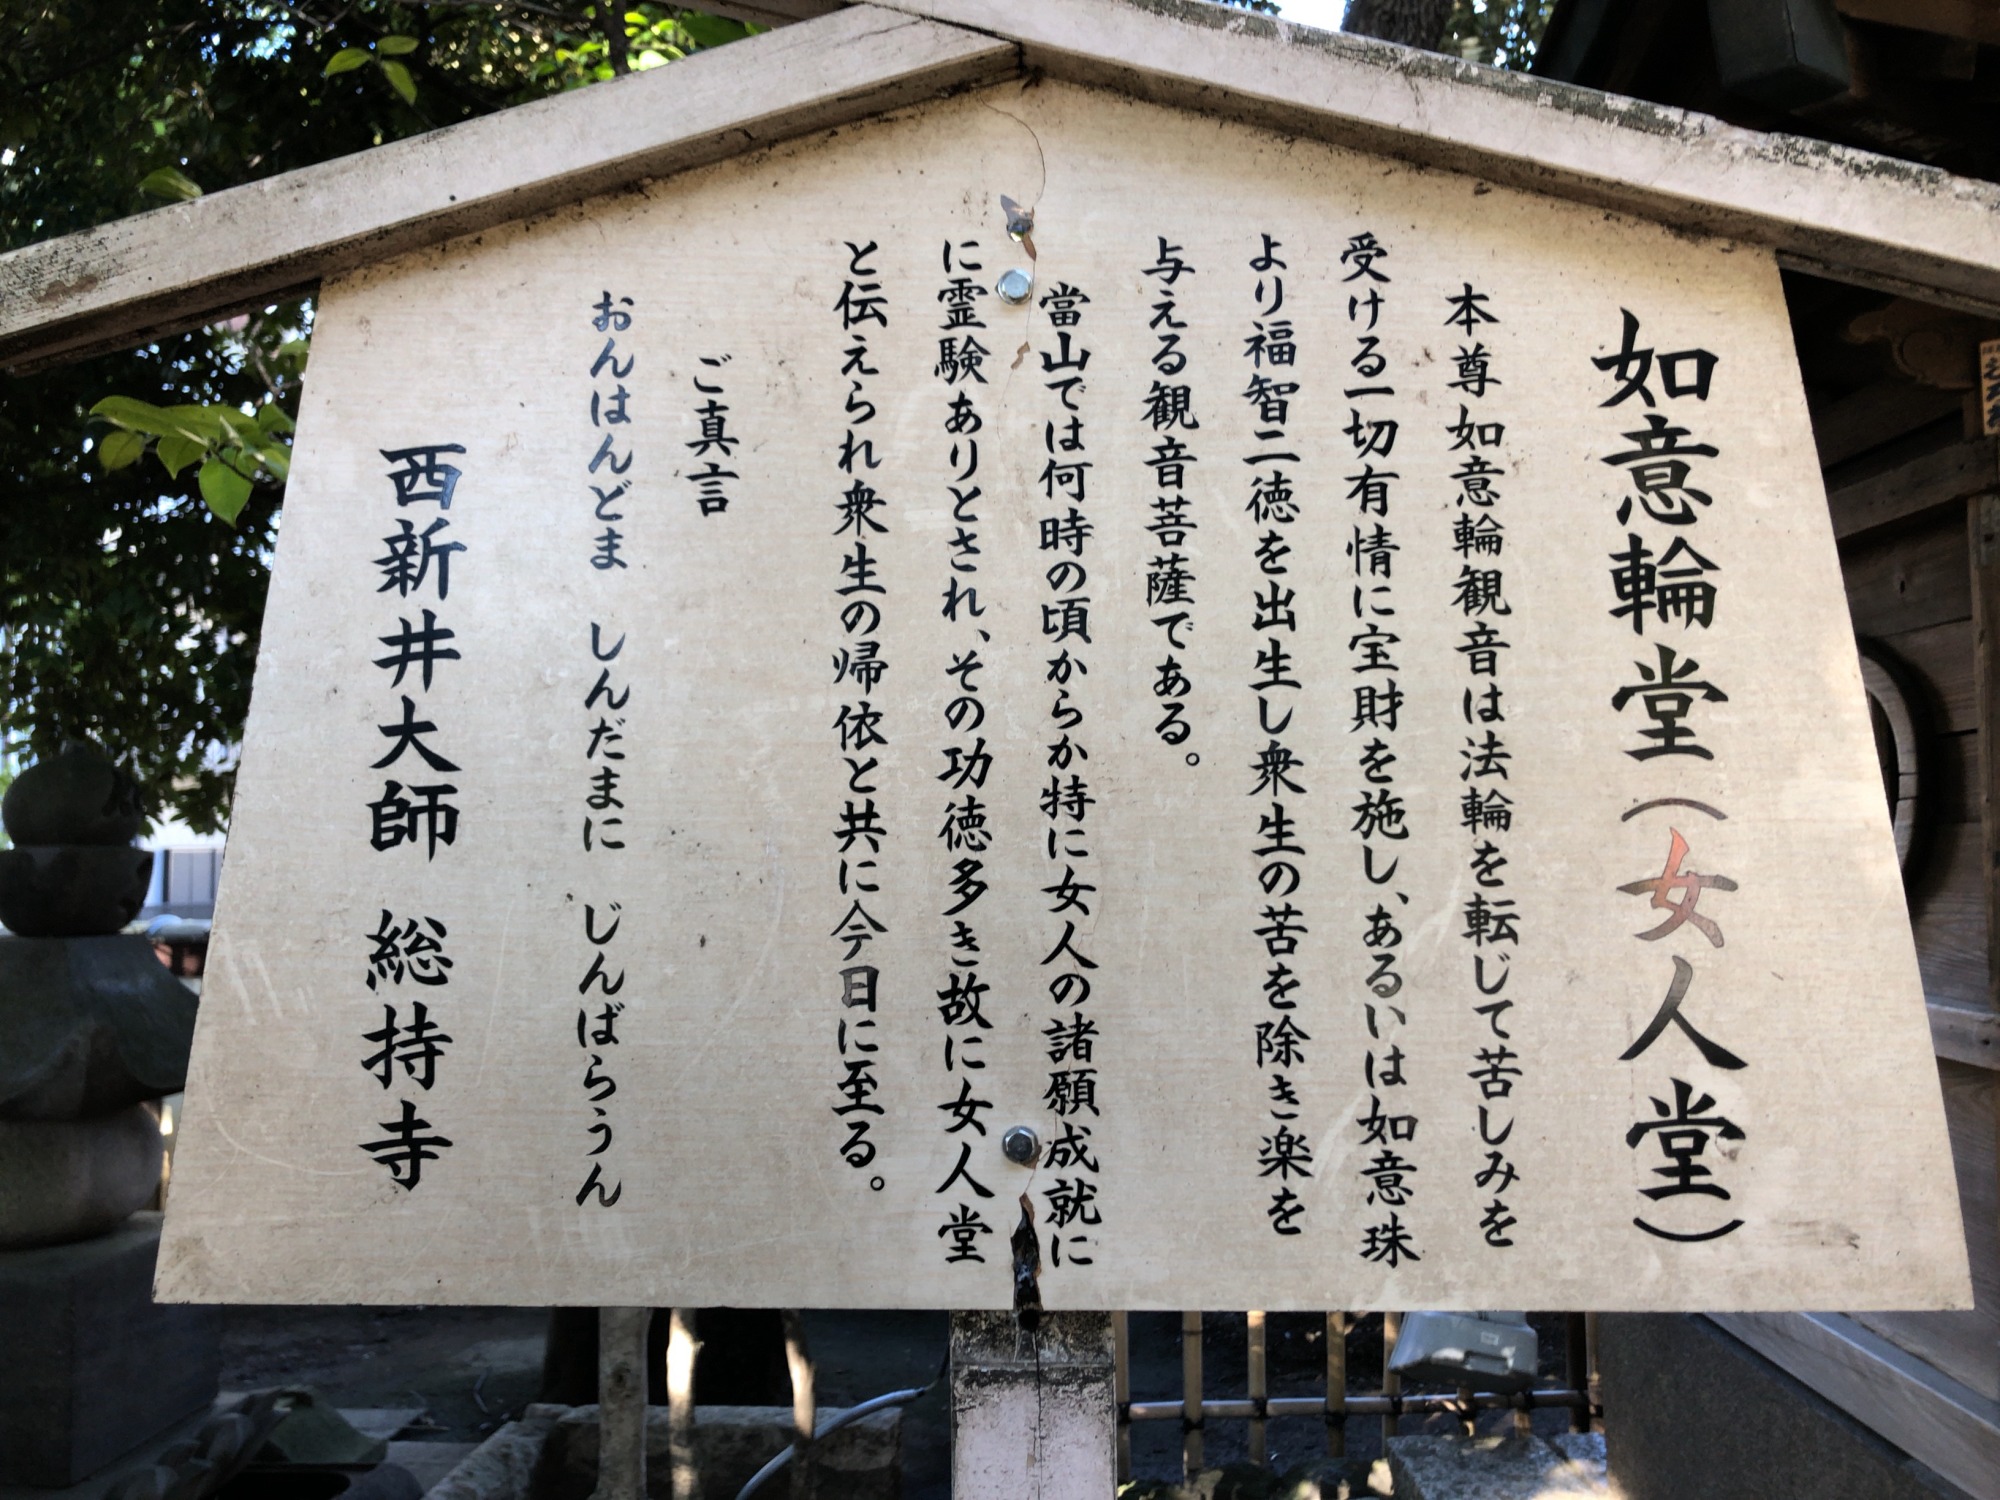 如意輪堂（女人堂）
本尊如意輪観音は法輪を転じて苦しみを
受ける一切有情に宝財を施し、あるいは如意珠
より福智二徳を出生し衆生の苦を除き楽を
与える観音菩薩である。
當山では何時の頃からか特に女人の諸願成就に
に霊験ありとされ、その功徳多き故に女人堂
と伝えられ衆生の帰依と共に今日に至る。
ご真言
おんはんどま　しんだまに　じんばらうん
西新井大師　総持寺